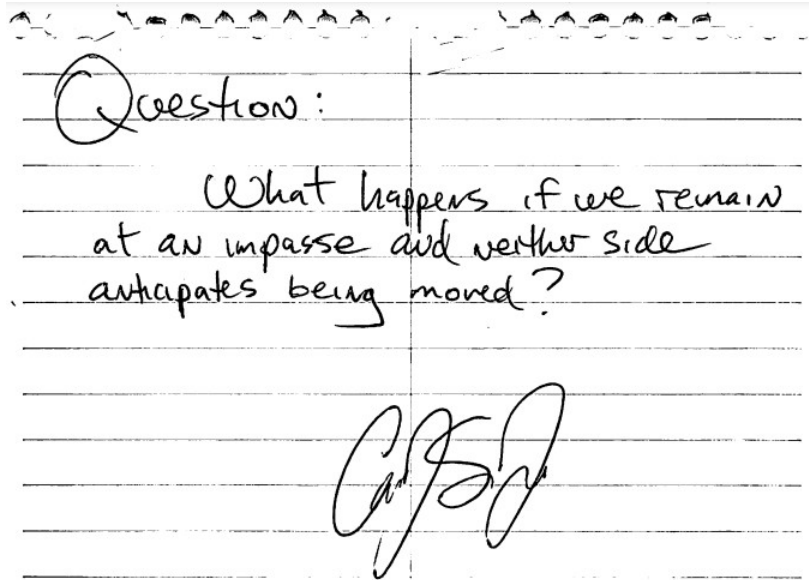 Question:
What happens if we remain
at an impasse and neither side
anticipates being moved?